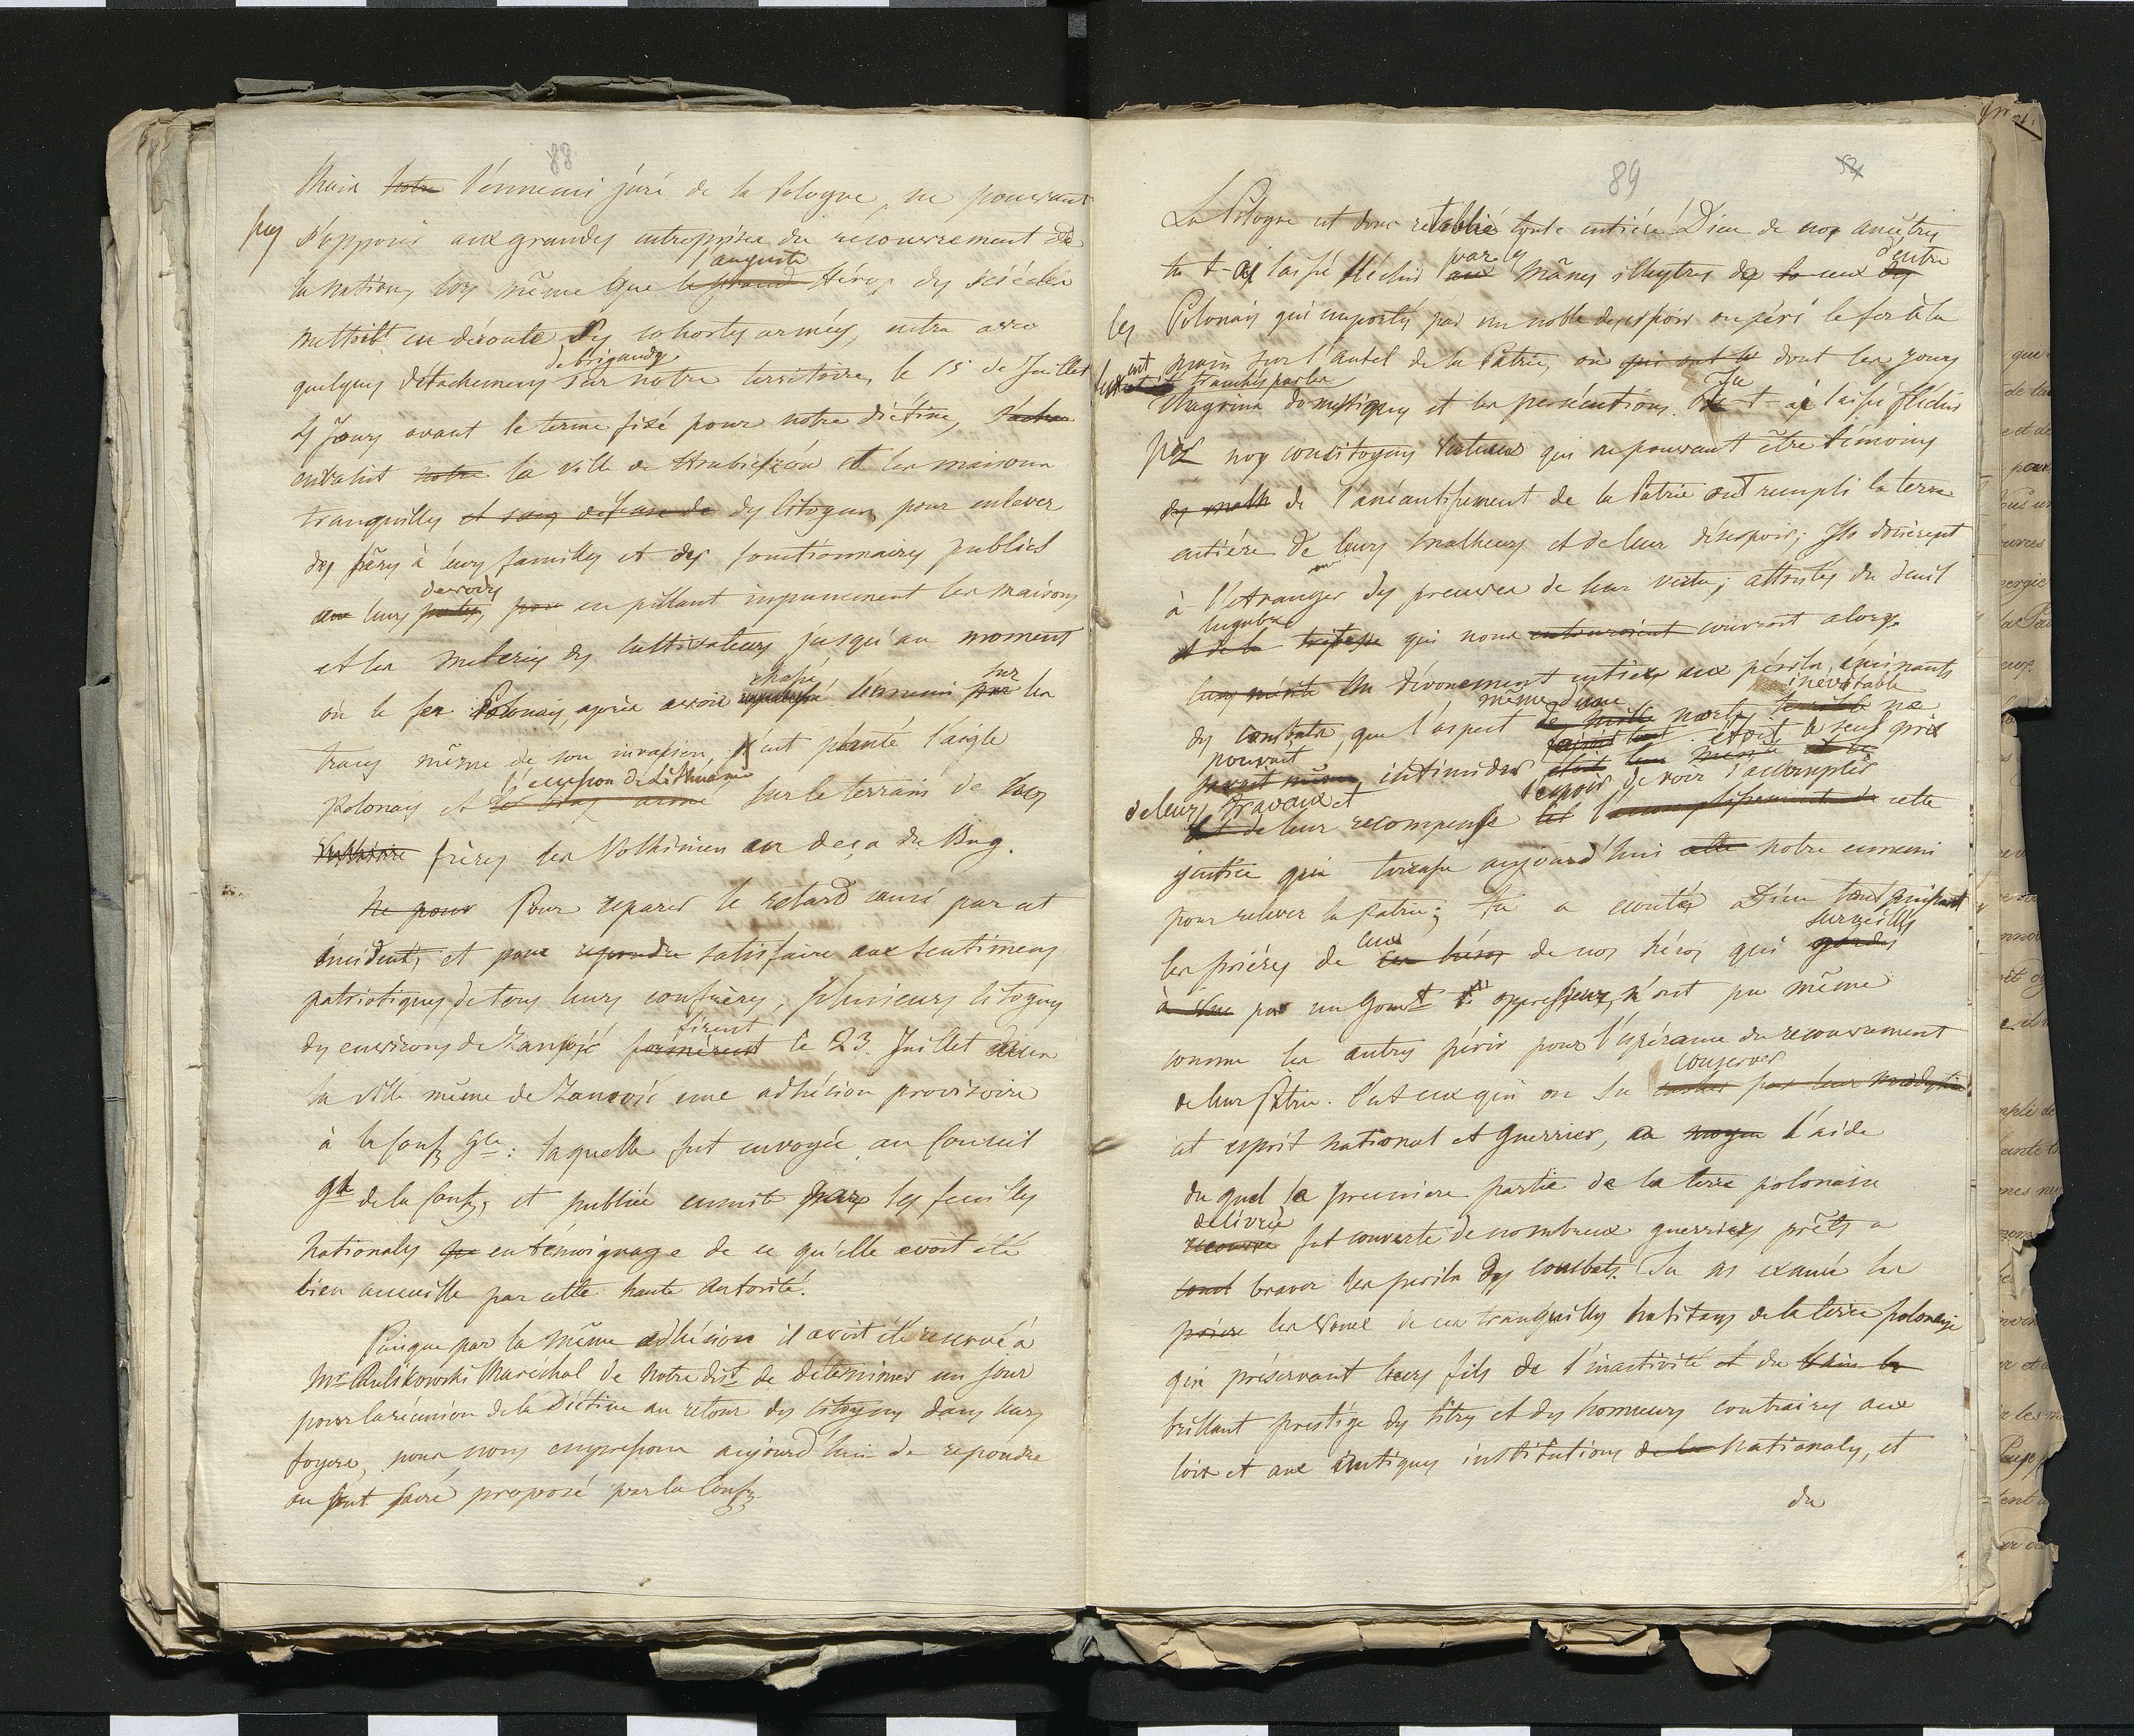 88
Mais notre l'ennemi juré de la Pologne, ne pouvant
pas s'opposer aux grandes entreprises du recouvrement de
auguste
la nation, lors même que le grand Héros des siécles
mettoit en déroute ses cohortes armées, entra avec
de brigands
quelques détachemens sur notre territoire, le 15 de Juillet
4 Jours avant le terme fixé pour notre diétine,
envahit notre la ville de Hrubieszów et les maisons
tranquilles et sans défense de des Citoyens, pour enlever
des pères à leurs familles et des fonctionnaires publics
devoirs
aux leurs postes, pour en pillant impunement les maisons
et les métairies des cultivateurs jusqu'au moment
chassé sur
où le fer Polonais, après avoir l'ennemi par les
traces même de son invasion, eut planté l'aigle
l'écusson de Lithuanie
Polonais et le bras armé sur le terrain de nos
Lithuanie frères les Volhiniens au deça du Bug.
Ne pour Pour reparer le retard causé par cet
incident, et pour repondre satisfaire aux sentimens
patriotiques de tous leurs confrères, plusieurs citoyens
firent
des environs de Zamość formèrent le 23 Juillet dans
la ville même de Zamość une adhésion provisoire
à la Conf. Gle: laquelle fut envoyée au Conseil
gl de la Conf. et publiée ensuite par les feuilles
nationales en témoignage de ce qu'elle avoit été
bien accueillie par cette haute Autorité.
Puisque par la même adhésion il avoit été reservé à
Mr Kulikowski Maréchal de notre dist. de déterminer un jour
pour la réunion de la Diétine au retour des citoyens dans leurs
foyers, nous nous empressons aujourd'hui de repondre
au but sacré proposé par la Conf.
89
La Pologne est donc retablie toute entiére! Dieu de nos ancêtres
par les d'entre
tu t-as laissé fléchir aux mânes illustres de ceux des
les Polonais qui emportés par un noble desespoir on péri le fer à la
main sur l'autel de la Patrie, où qui ont dont les jours
furent tranchés par les
chagrins domestiques et les persécutions. Tu t-as laissé fléchir
par nos concitoyens vertueux qui ne pouvant être témoins
des malh de l'anéantissement de la Patrie ont rempli la terre
entiére de leurs malheurs et de leur désespoir; Ils donnèrent
à l'etranger des preuves de leur vertu; attristés du deuil
lugubre
et de la tristesse qui nous entouroient couvroit alors,
leurs un dévouement entier aux périls éminents
même d'une inévitable
des combats, que l'aspect de mille morts terrible ne
pouvait étoit le seul prix
savoit même intimider
de leurs travaux et l'espoir de voir s'accomplir
et de leur recompense et l'accomplissement de cette
justice qui terrasse aujourd'hui notre ennemi
pour relever la Patrie; tu a ecoutés Dieu tout puissant
ceux surveillés
les prières de ces héros de nos héros qui gardés
à vue par un Gouvt oppresseur, n'ont pu même
comme les autres périr pour l'espérance du recouvrement
conserver
de leur Patrie. C'est eux qui on su
cet esprit national et guerrier, au moyen à l'aide
du quel la premiere partie de la terre polonaise
delivrée
recouvré fut couverte de nombreux guerriers prêts a
braver les perils des combats. Tu as exaucé les
prière les voeux de ces tranquilles habitans de la terre polonaise
qui préservant leurs fils de l'inactivité et du
brillant prestige des titres et des honneurs contraires aux
loix et aux antiques institutions de la nationales, et
du